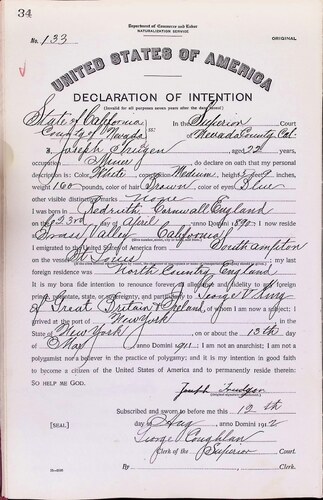 34
Department of Commerce and Labor
NATURALIZATION SERVICE
No. 133
ORIGINAL
UNITED STATES OF AMERICA
DECLARATION OF INTENTION
(Invalid for all purposes seven years after the date hereof)
State of California
County of Nevada ss:
In the Superior Court
of Nevada County Cal.
I, Joseph aged 22 years,
occupation Miner, do declare on oath that my personal
description is: Color White, complexion Medium, height 5 feet 9 inches,
weight 160 pounds, color of hair Brown, color of eyes Blue
other visible distinctive marks None
I was born in Redruth Cornwall England
on the 23rd day of April, anno Domini 1890; I now reside
at Grass Valley California
I emigrated to the United States of America from Southampton
on the vessel St Louis; my last
foreign residence was North Country England
It is my bona fide intention to renounce forever all allegiance and fidelity to any foreign
prince, potentate, state, or sovereignty, and particularly to George V King
of Great Britain & Ireland, of whom I am now a subject; I
arrived at the port of New York, in the
State of New York, on or about the 13th day
of May, anno Domini 1911; I am not an anarchist; I am not a
polygamist nor a believer in the practice of polygamy; and it is my intention in good faith
to become a citizen of the United States of America and to permanently reside therein:
SO HELP ME GOD.
Joseph
Subscribed and sworn to before me this 12th
[SEAL] day of Aug, anno Domini 1912
George Coughlan
Clerk of the Superior Court.
By , Clerk.